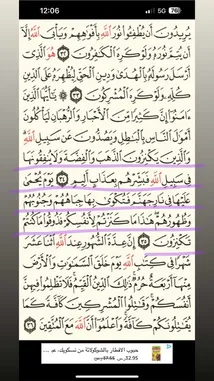 12:06
5G
76
يُرِيدُونَ أَن يُطْفِـُٔوا۟ نُورَ ٱللَّهِ بِأَفْوَٰهِهِمْ وَيَأْبَى ٱللَّهُ إِلَّآ
أَن يُتِمَّ نُورَهُۥ وَلَوْ كَرِهَ ٱلْكَٰفِرُونَ ٣٢ هُوَ ٱلَّذِىٓ
أَرْسَلَ رَسُولَهُۥ بِٱلْهُدَىٰ وَدِينِ ٱلْحَقِّ لِيُظْهِرَهُۥ عَلَى ٱلدِّينِ
كُلِّهِۦ وَلَوْ كَرِهَ ٱلْمُشْرِكُونَ ٣٣ ۞ يَٰٓأَيُّهَا ٱلَّذِينَ
ءَامَنُوٓا۟ إِنَّ كَثِيرًا مِّنَ ٱلْأَحْبَارِ وَٱلرُّهْبَانِ لَيَأْكُلُونَ
أَمْوَٰلَ ٱلنَّاسِ بِٱلْبَٰطِلِ وَيَصُدُّونَ عَن سَبِيلِ ٱللَّهِ ۗ
وَٱلَّذِينَ يَكْنِزُونَ ٱلذَّهَبَ وَٱلْفِضَّةَ وَلَا يُنفِقُونَهَا
فِى سَبِيلِ ٱللَّهِ فَبَشِّرْهُم بِعَذَابٍ أَلِيمٍ ٣٤ يَوْمَ يُحْمَىٰ
عَلَيْهَا فِى نَارِ جَهَنَّمَ فَتُكْوَىٰ بِهَا جِبَاهُهُمْ وَجُنُوبُهُمْ
وَظُهُورُهُمْ ۖ هَٰذَا مَا كَنَزْتُمْ لِأَنفُسِكُمْ فَذُوقُوا۟ مَا كُنتُمْ
تَكْنِزُونَ ٣٥ إِنَّ عِدَّةَ ٱلشُّهُورِ عِندَ ٱللَّهِ ٱثْنَا عَشَرَ
شَهْرًا فِى كِتَٰبِ ٱللَّهِ يَوْمَ خَلَقَ ٱلسَّمَٰوَٰتِ وَٱلْأَرْضَ
مِنْهَآ أَرْبَعَةٌ حُرُمٌ ۚ ذَٰلِكَ ٱلدِّينُ ٱلْقَيِّمُ ۚ فَلَا تَظْلِمُوا۟ فِيهِنَّ
أَنفُسَكُمْ ۚ وَقَٰتِلُوا۟ ٱلْمُشْرِكِينَ كَآفَّةً كَمَا
يُقَٰتِلُونَكُمْ كَآفَّةً ۚ وَٱعْلَمُوٓا۟ أَنَّ ٱللَّهَ مَعَ ٱلْمُتَّقِينَ ٣٦
حبوب الافطار بالشوكولاتة من نسكويك، عبو ...